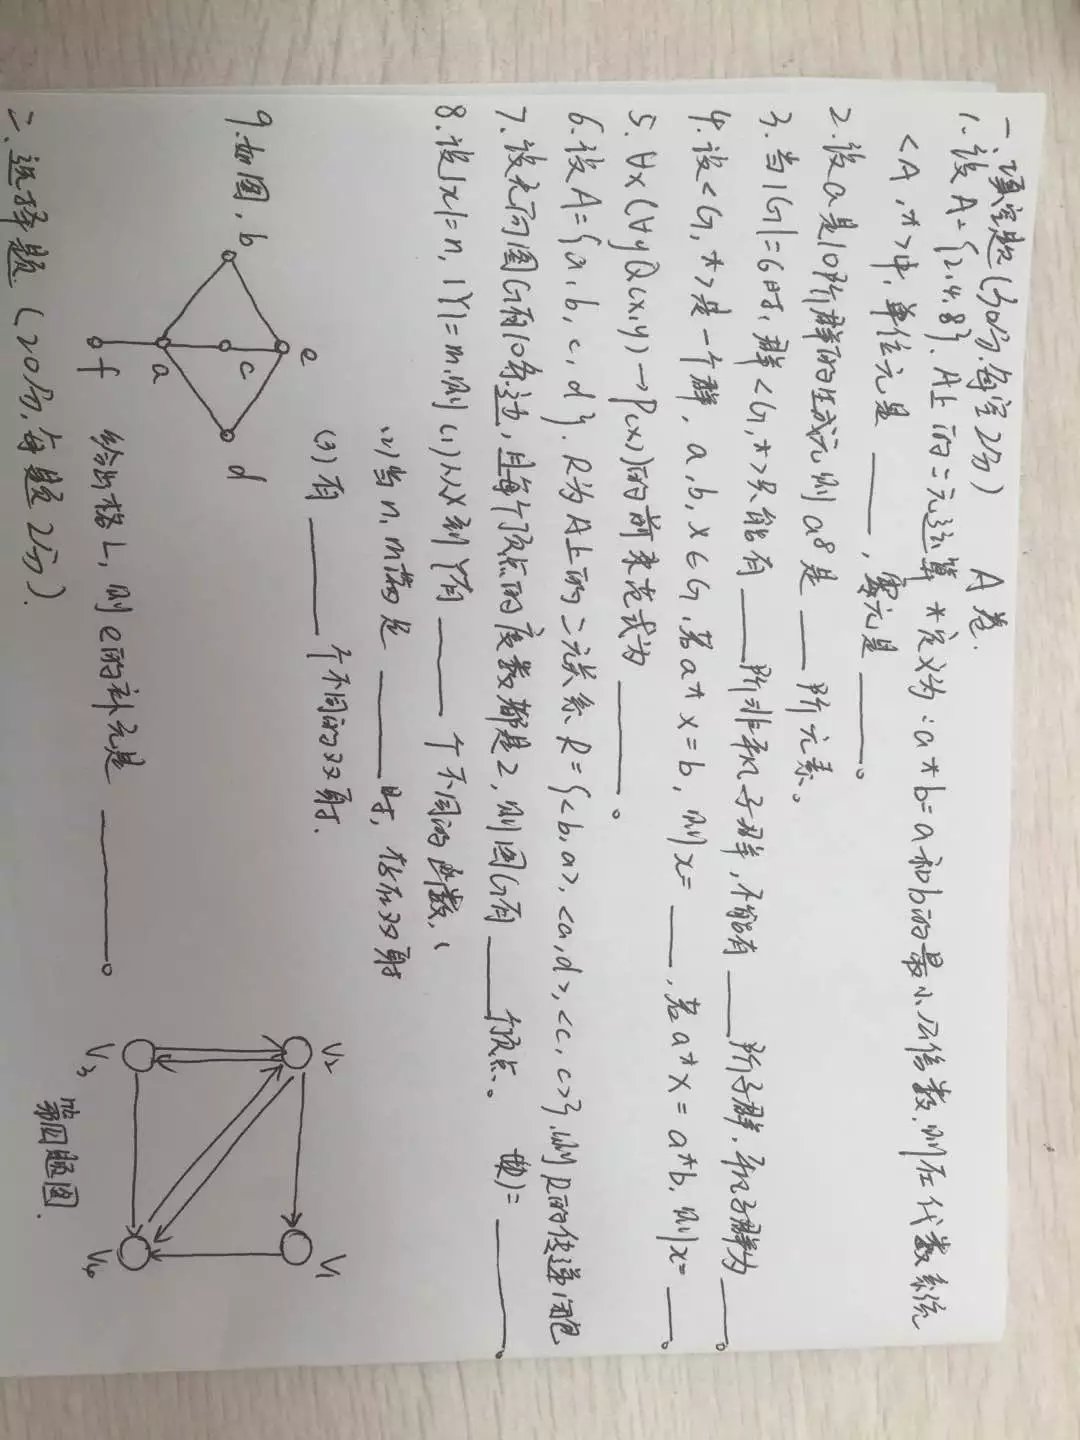 一、填空题(30分,每空2分) A卷.
1.设A={2,4,8},A上的二元运算*定义为:a*b=a和b的最小公倍数,则在代数系统
<A,*>中,单位元是____,零元是____。
2.设a是10阶群的生成元则a⁸是____阶元素。
3.当|G|=6时,群<G,*>只能有____阶非平凡子群,不能有____阶子群,平凡子群为____。
4.设<G,*>是一个群,a,b,x∈G,若a*x=b,则x=____,若a*x=a*b,则x=____。
5.∀x(∀yQ(x,y)→P(x))的前束范式为____。
6.设A={a,b,c,d},R为A上的二元关系R={<b,a>,<a,d>,<c,c>},则R的传递闭包
t(R)=____。
7.设无向图G有10条边,且每个顶点的度数都是2,则图G有____个顶点。
8.设|x|=n,|Y|=m,则(1)从X到Y有____个不同的函数,
(2)当n,m满足____时,存在双射
(3)有____个不同的双射.
9.如图,
e
b
c
d
a
f
给出格L,则e的补元是____。
V2
V1
V3
V4
第四题图.
二、选择题.(20分,每题2分).